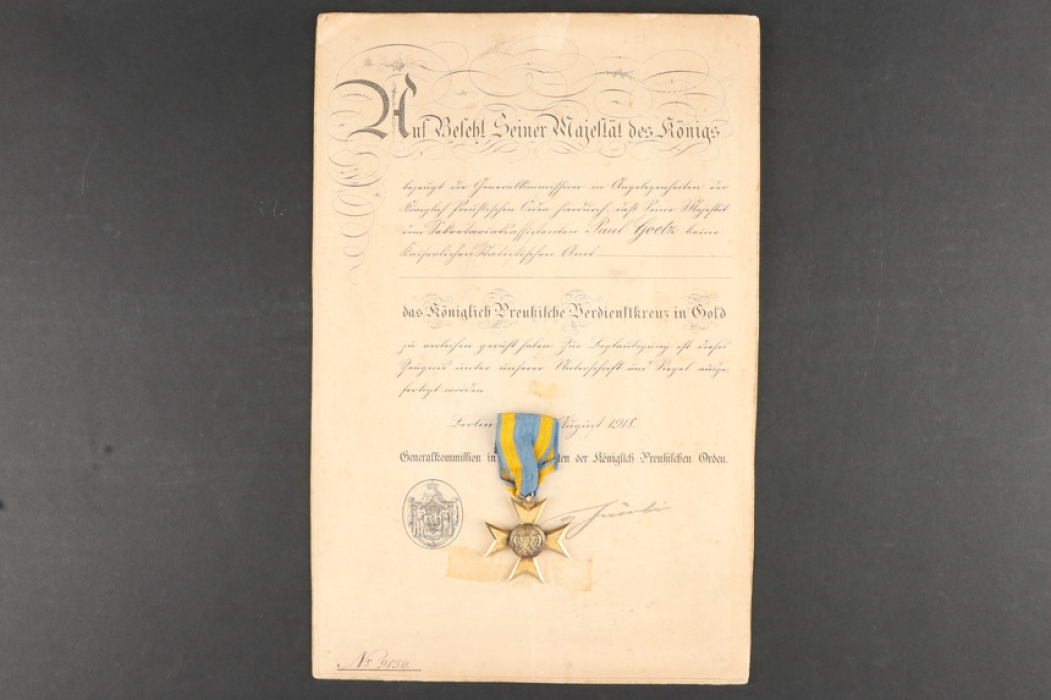 Auf Befehl Seiner Majestät des Königs
bezeugt die Generalkommission in Angelegenheiten der
Königlich Preußischen Orden hierdurch, daß Seine Majestät
dem Sekretariatsassistenten Paul Goetz beim
Kaiserlichen Statistischen Amt
das Königlich Preußische Verdienstkreuz in Gold
zu verleihen geruht haben. Zur Beglaubigung ist dieses
Zeugnis unter unserer Unterschrift und Siegel ausge-
fertigt worden.
Berlin August 1918.
Generalkommission in ten der Königlich Preußischen Orden.
No 9850.